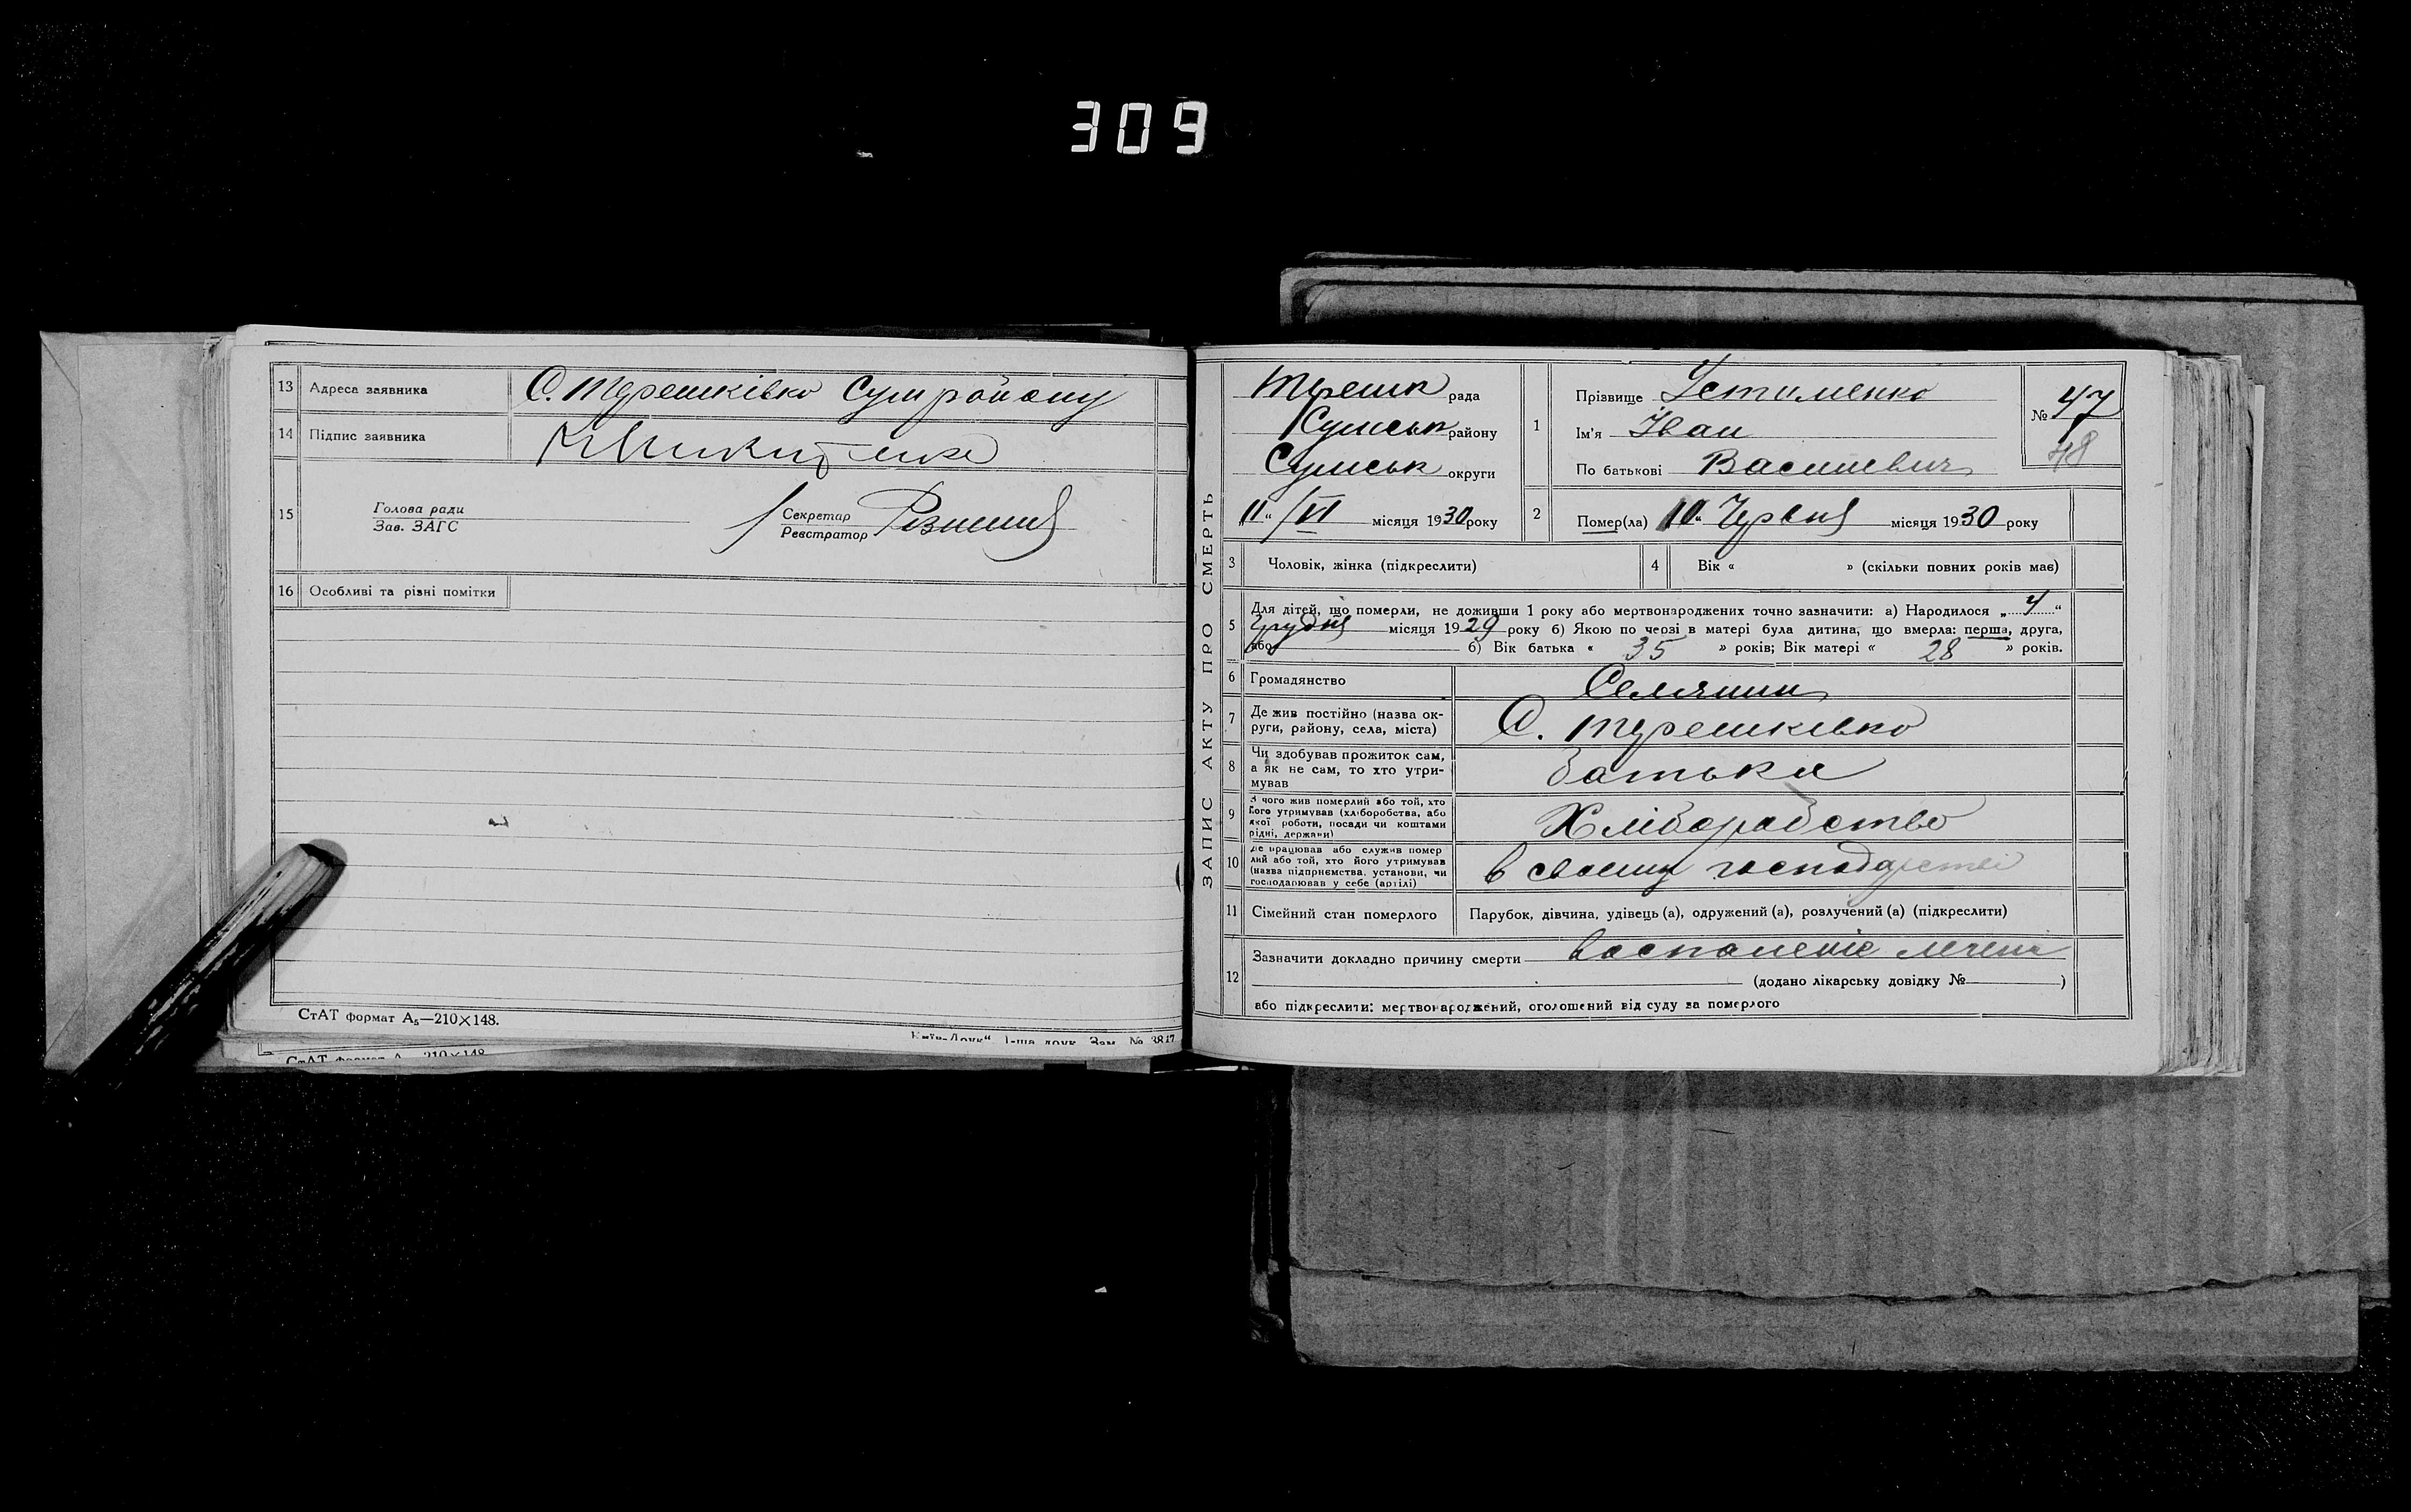 309
13 Адреса заявника С. Терешківка Сум району
14 Підпис заявника Микитенко
15 Голова ради
Зав. ЗАГС
Секретар
Реєстратор
16 Особливі та різні помітки
СтАТ формат А₅—210×148.
СтАТ формат А 210×148
"Київ-Друк" 1-ша друк. Зам. № 3817
ЗАПИС АКТУ ПРО СМЕРТЬ
Терешк рада
Сумськ району
Сумськ округи
11 "/VI місяця 1930 року
1 Прізвище Устименко
Ім'я Іван
По батькові Васильевич
№ 47
48
2 Помер(ла) 10" Червня місяця 1930 року
3 Чоловік, жінка (підкреслити)
4 Вік « » (скільки повних років має)
5 Для дітей, що померли, не доживши 1 року або мертвонароджених точно зазначити: а) Народилося „ 4 “
Грудня місяця 1929 року б) Якою по черзі в матері була дитина, що вмерла: перша, друга,
або б) Вік батька « 35 » років; Вік матері « 28 » років.
6 Громадянство Селянин
7 Де жив постійно (назва ок-
руги, району, села, міста) С. Терешківка
8 Чи здобував прожиток сам,
а як не сам, то хто утри-
мував батьки
9 З чого жив померлий або той, хто
його утримував (хліборобства, або
якої роботи, посади чи коштами
рідні, держави) Хліборобство
10 Де працював або служив помер
лий або той, хто його утримував
(назва підприємства, установи, чи
господарював у себе (артілі) в своему господарстві
11 Сімейний стан померлого Парубок, дівчина, удівець (а), одружений (а), розлучений (а) (підкреслити)
12 Зазначити докладно причину смерти воспаление
(додано лікарську довідку № )
або підкреслити: мертвонароджений, оголошений від суду за померлого